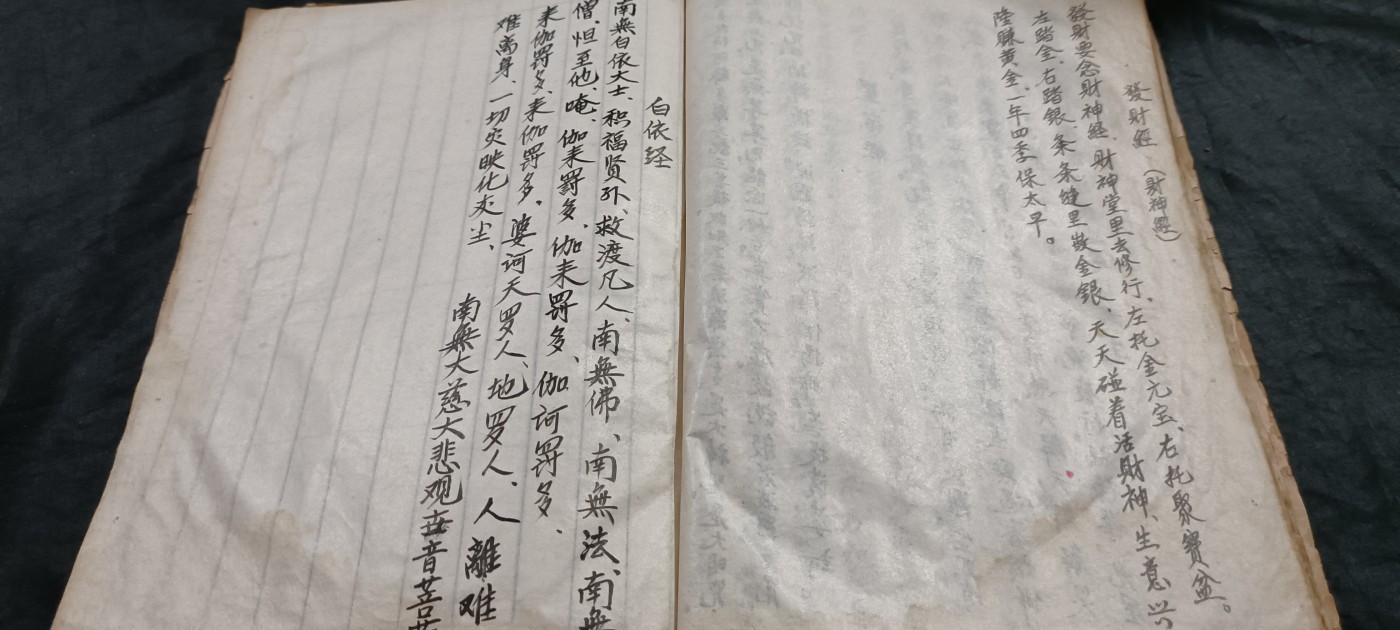 發財經（財神經）
發財要念財神經、財神堂里去修行、左托金元宝、右托聚寶盆。
左踏金、右踏銀、条条缝里嵌金銀、天天碰着活財神、生意兴
隆賺黄金、一年四季保太平。
白依经
南無白依大士、积福贤外、救渡凡人、南無佛、南無法、南無
僧、怛至他、唵、伽耒罸多、伽耒罸多、伽诃罸多、
耒伽罸多、耒伽罸多、婆诃天罗人、地罗人、人離难
难离身、一切灾映化灰尘、
南無大慈大悲观世音菩